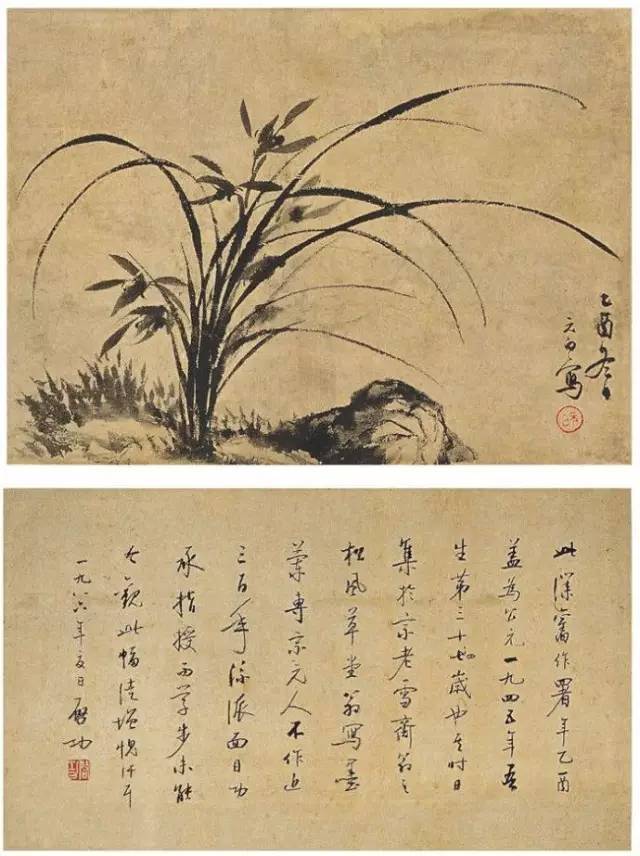 乙酉冬日
元白寫
此僕舊作署年乙酉
蓋為公元一九四五年吾
生第三十四歲也其時日
集於宗老雪齋翁之
松風草堂翁寫墨
蘭專宗元人不作近
三百年流派面目功
承指授而學步未能
今觀此幅徒增愧汗耳
一九八六年夏日啟功